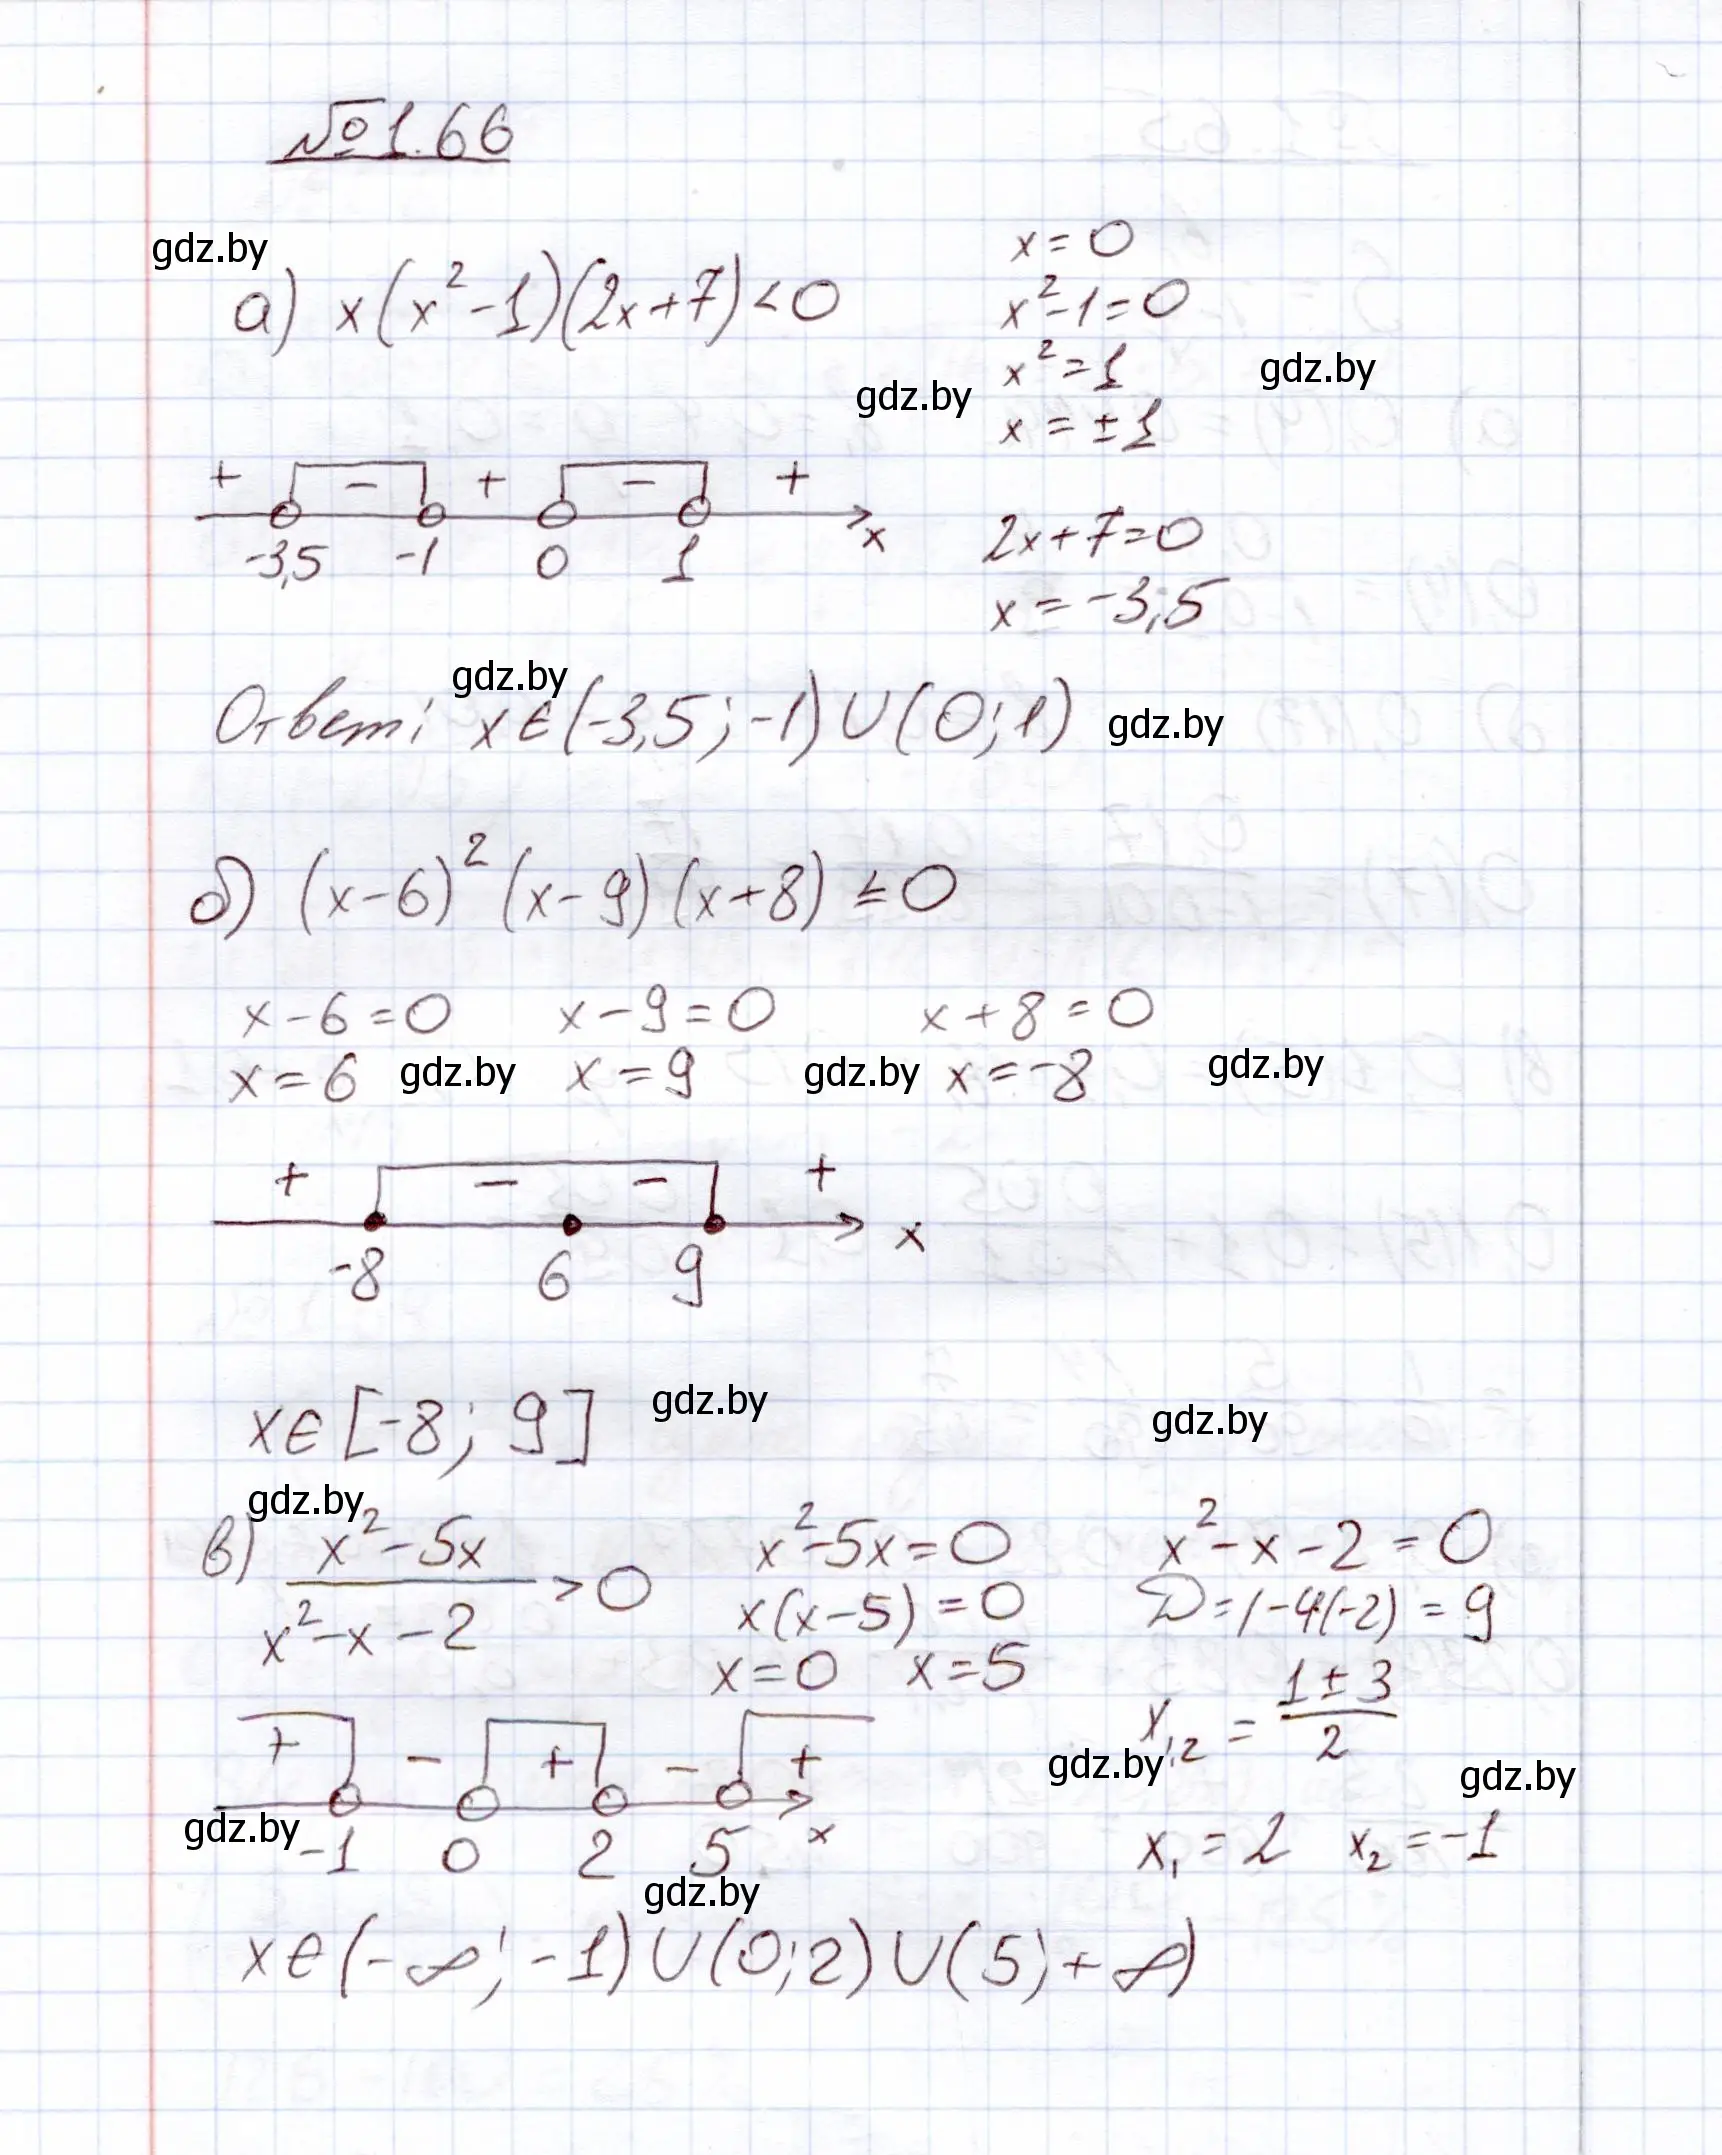 №1.66
gdz.by
а) x(x²-1)(2x+7)<0
x=0
x²-1=0
x²=1
x=±1
gdz.by
gdz.by
+ - + - +
-3,5 -1 0 1 x
2x+7=0
x=-3,5
gdz.by
Ответ: x∈(-3,5;-1)∪(0;1)
gdz.by
б) (x-6)²(x-9)(x+8)≤0
x-6=0 x-9=0 x+8=0
x=6 gdz.by x=9 gdz.by x=-8 gdz.by
+ - - +
-8 6 9 x
x∈[-8; 9]
gdz.by
gdz.by
gdz.by
в) (x²-5x)/(x²-x-2) >0
x²-5x=0
x(x-5)=0
x=0 x=5
x²-x-2=0
D=1-4(-2)=9
x₁,₂ = (1±3)/2
gdz.by
gdz.by
x₁=2 x₂=-1
+ - + - +
gdz.by
-1 0 2 5 x
gdz.by
x∈(-∞;-1)∪(0;2)∪(5;+∞)